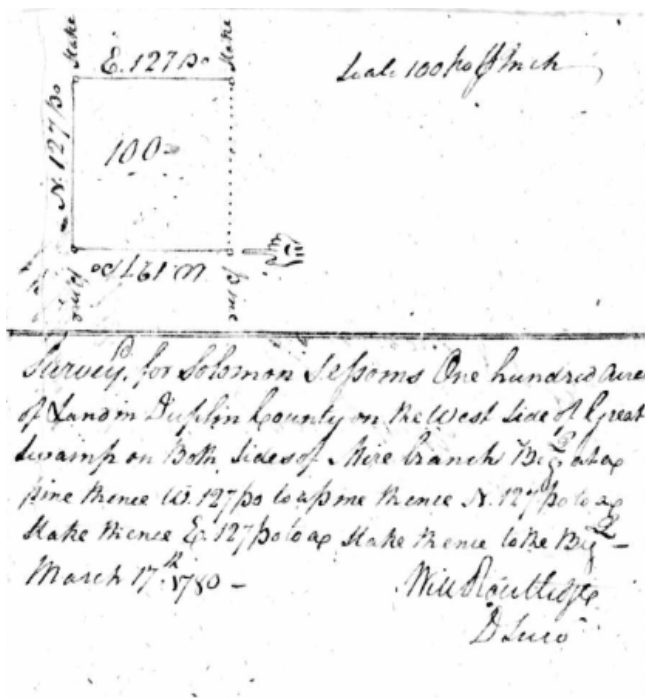 Stake
E. 127 po
Stake
Scale 100 po ⅌ Inch
N. 127 po
100
W 127 Po
pine
pine
Survey.d for Solomon Sessoms One hundred acres
of Land in Duplin County on the West Side of Great
Swamp on Both Sides of Mire branch Beg at a
pine thence W. 127 po to a pine thence N. 127 po to a
Stake thence E. 127 po to a Stake thence to the Beg
March 17th 1780 -
Will Routledge
D Suro